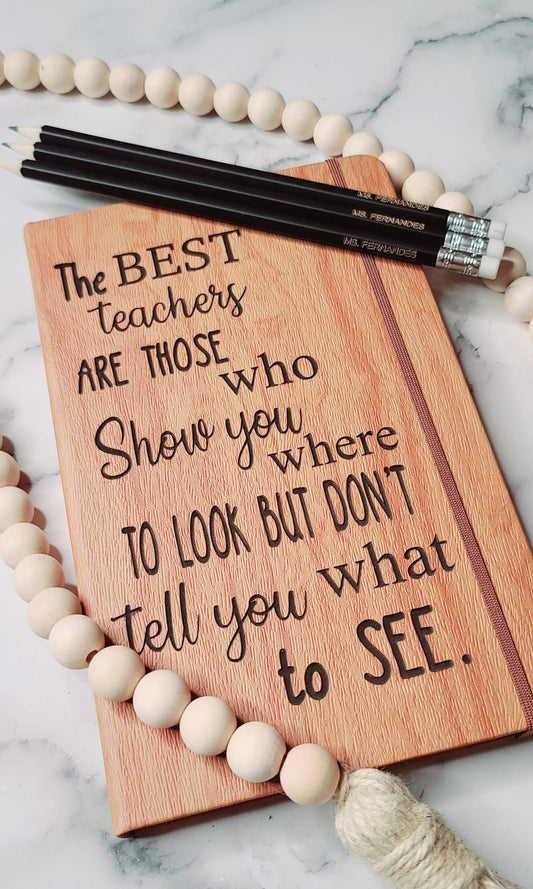 MS. FERNANDES
MS. FERNANDES
MS. FERNANDES
The BEST
teachers
ARE THOSE
who
Show you
where
TO LOOK BUT DON'T
tell you what
to SEE.